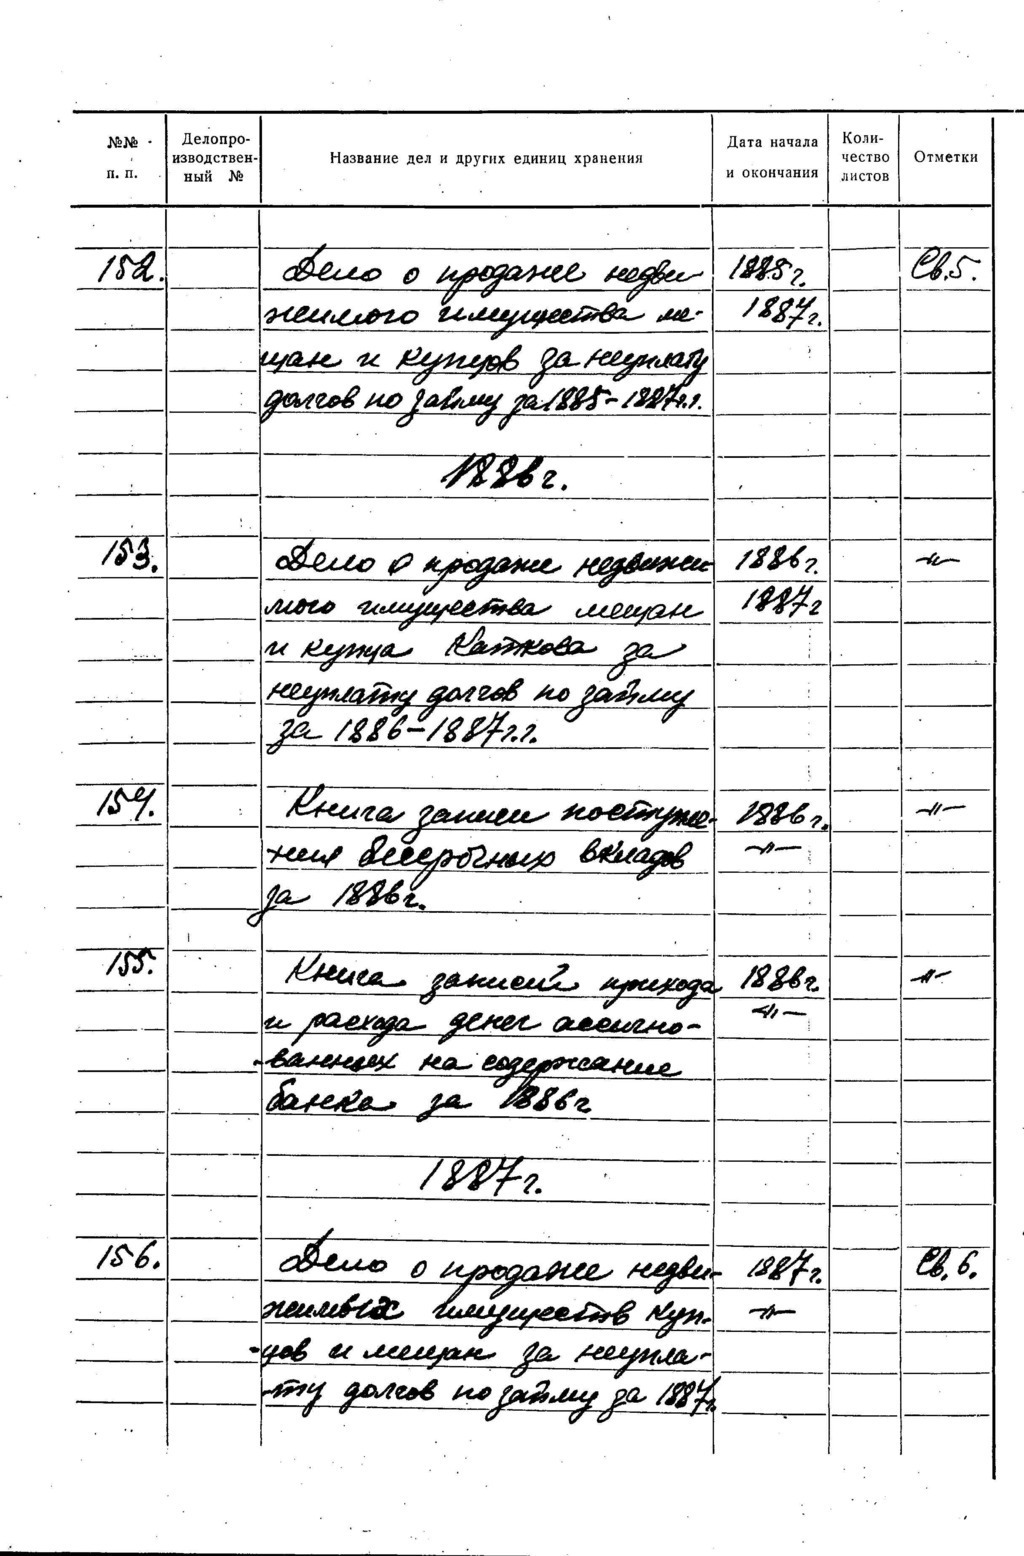 №№ п. п. Делопроизводственный № Название дел и других единиц хранения Дата начала и окончания Количество листов Отметки
152. Дело о продаже недви- 1885г. Св.5.
жимого имущества ме- 1887г.
щан и купцов за неуплату
долгов по займу за 1885-1887г.г.
1886г.
153. Дело о продаже недвижи 1886г. -"-
мого имущества мещан 1887г
и купца Каткова за
неуплату долгов по займу
за 1886-1887г.г.
154. Книга записи поступле- 1886г. -"-
ния бессрочных вкладов -"-
за 1886г.
155. Книга записей прихода 1886г. -"-
и расхода денег ассигно- -"-
-ванных на содержание
банка за 1886г
1887г.
156. Дело о продаже недви- 1887г. Св.6.
жимых имуществ куп- -"-
-цов и мещан за неупла-
-ту долгов по займу за 1887г.